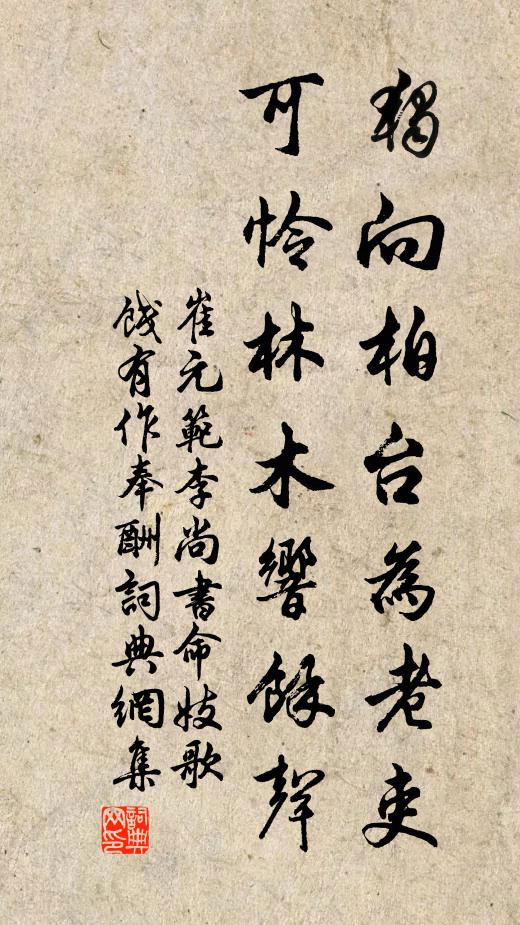 獨向柏台為老吏
可怜林木響餘聲
崔元範李尚書命妓歌
餞有作奉酬詞典網集
詞典
网印